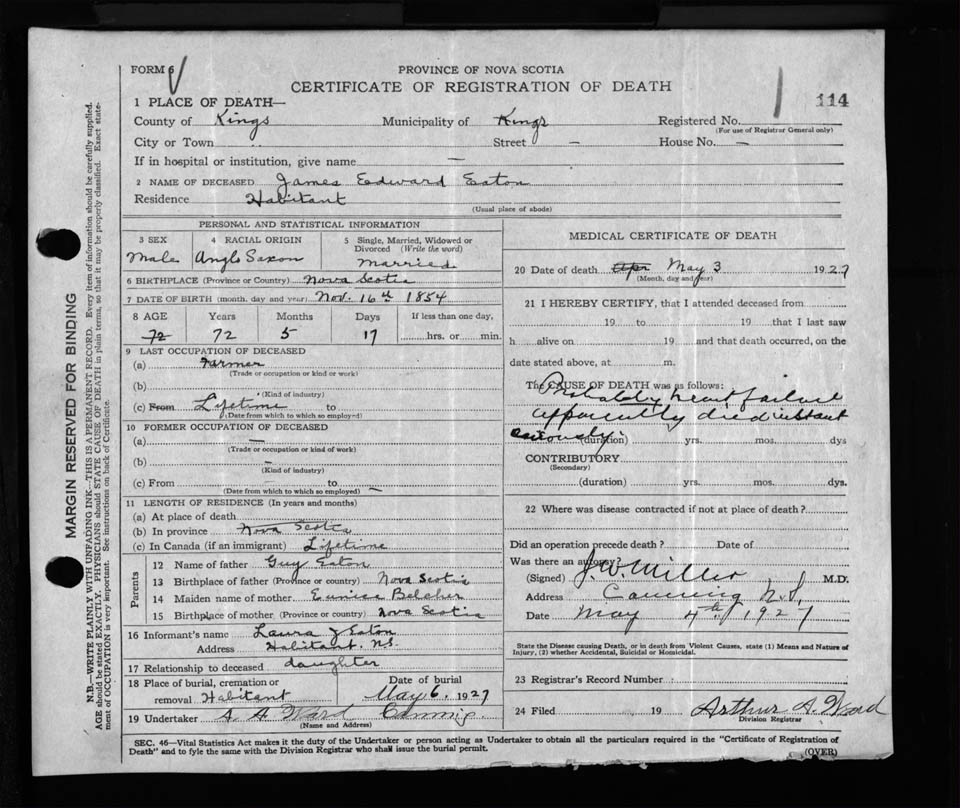 FORM 6
PROVINCE OF NOVA SCOTIA
CERTIFICATE OF REGISTRATION OF DEATH
114
1 PLACE OF DEATH—
County of Kings Municipality of Kings Registered No.
(For use of Registrar General only)
City or Town Street — House No. —
If in hospital or institution, give name —
2 NAME OF DECEASED James Edward Eaton
Residence Habitant
(Usual place of abode)
PERSONAL AND STATISTICAL INFORMATION
3 SEX Male
4 RACIAL ORIGIN Anglo Saxon
5 Single, Married, Widowed or Divorced (Write the word) Married
6 BIRTHPLACE (Province or Country) Nova Scotia
7 DATE OF BIRTH (month, day and year) Nov. 16th 1854
8 AGE Years Months Days If less than one day,
72 72 5 17 hrs. or min.
9 LAST OCCUPATION OF DECEASED
(a) Farmer
(Trade or occupation or kind or work)
(b)
(Kind of industry)
(c) From Lifetime to
(Date from which to which so employed)
10 FORMER OCCUPATION OF DECEASED
(a) —
(Trade or occupation or kind of work)
(b) —
(Kind of industry)
(c) From — to —
(Date from which to which so employed)
11 LENGTH OF RESIDENCE (In years and months)
(a) At place of death
(b) In province Nova Scotia
(c) In Canada (if an immigrant) Lifetime
Parents
12 Name of father Guy Eaton
13 Birthplace of father (Province or country) Nova Scotia
14 Maiden name of mother Eunice Belcher
15 Birthplace of mother (Province or country) Nova Scotia
16 Informant's name Laura J Eaton
Address Habitant, N.S.
17 Relationship to deceased daughter
18 Place of burial, cremation or removal Habitant
Date of burial May 6. 1927
19 Undertaker A. A. Ward
(Name and Address)
MEDICAL CERTIFICATE OF DEATH
20 Date of death Apr May 3 1927
(Month, day and year)
21 I HEREBY CERTIFY, that I attended deceased from
19 to 19 that I last saw
h alive on 19 and that death occurred, on the
date stated above, at m.
The CAUSE OF DEATH was as follows:
Probably heart failure
apparently died instant
aneously.
(duration) yrs. mos. dys
CONTRIBUTORY
(Secondary)
(duration) yrs. mos. dys.
22 Where was disease contracted if not at place of death?
Did an operation precede death? Date of
Was there an autopsy?
(Signed) J. W. Miller M.D.
Address Canning N.S.
Date May 4th 1927
State the Disease causing Death, or in death from Violent Causes, state (1) Means and Nature of Injury, (2) whether Accidental, Suicidal or Homicidal.
23 Registrar's Record Number
24 Filed 19 Arthur A. Ward
Division Registrar
SEC. 46—Vital Statistics Act makes it the duty of the Undertaker or person acting as Undertaker to obtain all the particulars required in the "Certificate of Registration of
Death" and to fyle the same with the Division Registrar who shall issue the burial permit.
(OVER)
MARGIN RESERVED FOR BINDING
N.B.—WRITE PLAINLY WITH UNFADING INK—THIS IS A PERMANENT RECORD. Every item of information should be carefully supplied.
AGE should be stated EXACTLY. PHYSICIANS should STATE CAUSE OF DEATH in plain terms, so that it may be properly classified. Exact state-
ment of OCCUPATION is very important. See instructions on back of Certificate.